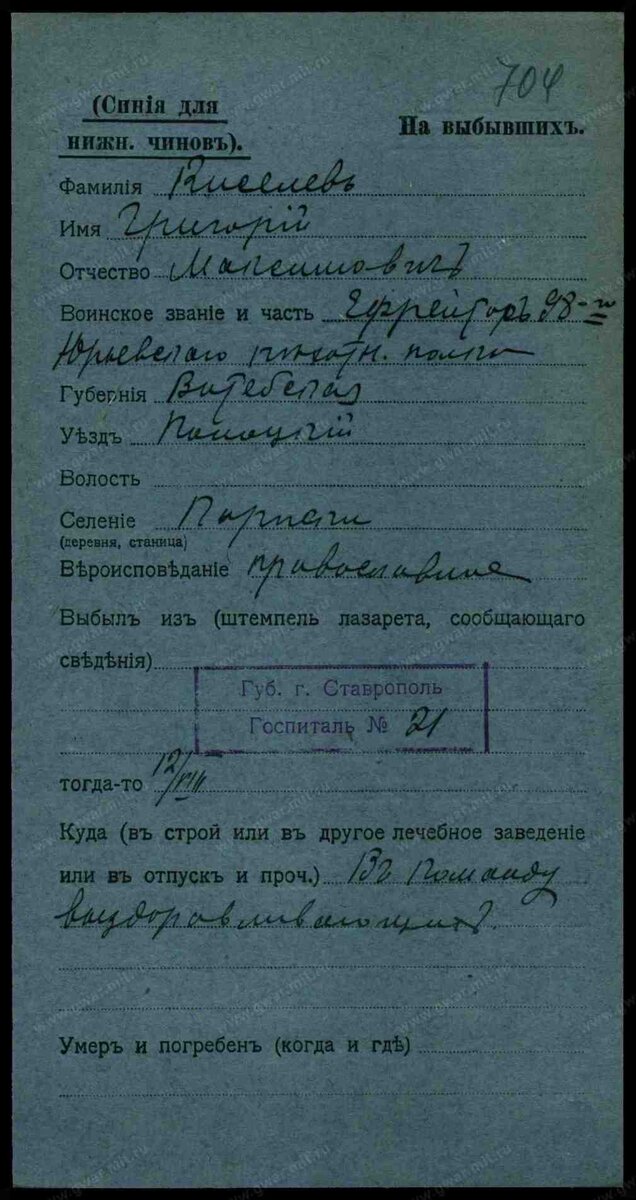 704
(Синія для
нижн. чиновъ).
На выбывшихъ.
Фамилія Киселевъ
Имя Григорій
Отчество Максимовичъ
Воинское званіе и часть Ефрейторъ 98-го
Юрьевскаго пѣхотн. полка
Губернія Витебская
Уѣздъ Полоцкій
Волость
Селеніе
(деревня, станица)
Вѣроисповѣданіе православное
Выбылъ изъ (штемпель лазарета, сообщающаго
свѣдѣнія)
Губ. г. Ставрополь
Госпиталь № 21
тогда-то 12/VIII
Куда (въ строй или въ другое лечебное заведеніе
или въ отпускъ и проч.) Въ команду
выздоравливающихъ.
Умеръ и погребенъ (когда и гдѣ)
www.gwar.mil.ru